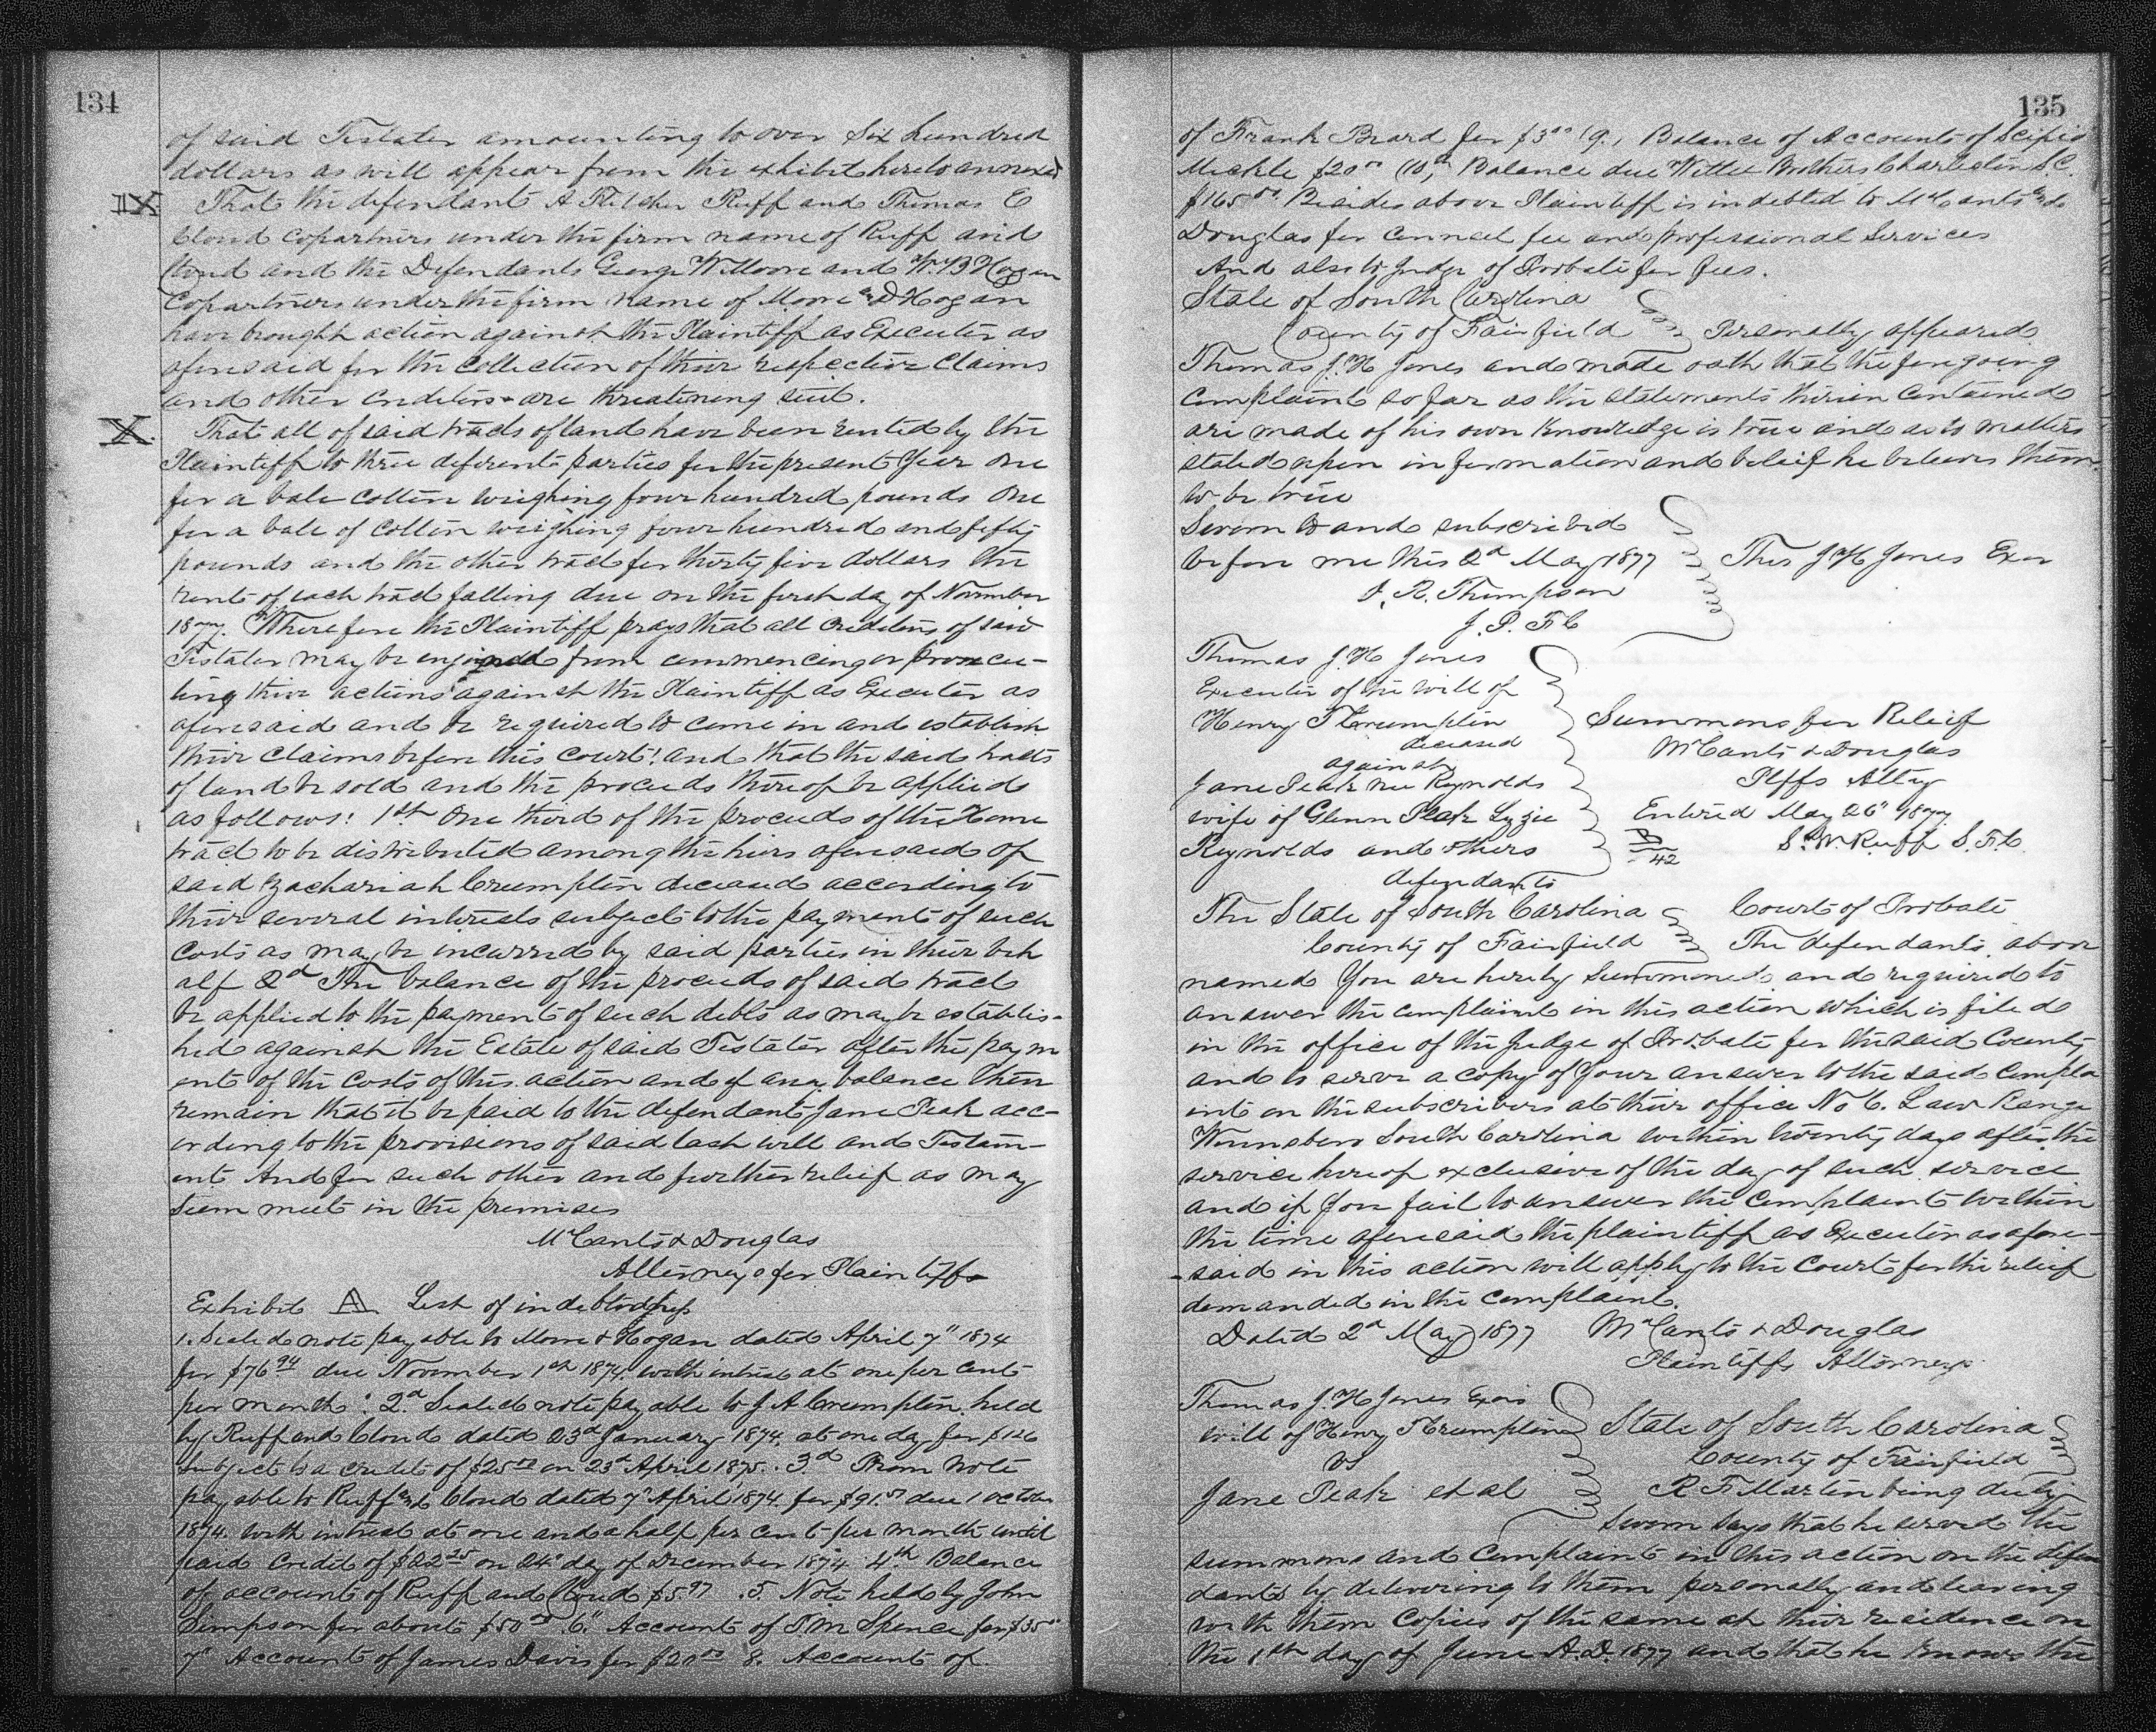 134
of said Testator amounting to over Six hundred
dollars as will appear from the exhibit hereto annexed
IX That the defendants A Fletcher Ruff and Thomas E
Cloud copartners under the firm name of Ruff and
Cloud and the Defendants George W Moore and W. B Hogan
Copartners under the firm name of Moore and Hogan
have brought action against the Plaintiff as Executor as
aforesaid for the collection of their respective Claims
and other Creditors are threatening suit.
X. That all of said tracts of land have been rented by the
Plaintiff to three diferent parties for the present year one
for a bale cotton weighing four hundred pounds one
for a bale of cotton weighing four hundred and fifty
pounds and the other tract for thirty five dollars the
rents of each tract falling due on the first day of November
1877. Wherefore the Plaintiff prays that all creditors of said
Testator may be enjoined from commencing or prosecu-
ting their actions against the Plaintiff as Executor as
aforesaid and be required to come in and establish
their claims before this court! and that the said tracts
of land be sold and the proceeds thereof be applied
as follows: 1st One third of the proceeds of the Home
tract to be distributed among the heirs aforesaid of
said Zachariah Crumpton deceased according to
their several interests subject to the payment of such
costs as may be incurred by said parties in their beh
alf 2d The balance of the proceeds of said tract
be applied to the payment of such debts as may be establis-
hed against the Estate of said Testator after the paym
ent of the costs of this action and if any balance then
remain that it be paid to the defendant Jane Peak acc-
ording to the provisions of said last will and Testam-
ent And for such other and further relief as may
seem meet in the premises
McCants & Douglas
Attorneys for Plaintiffs
Exhibit A List of indebtedness
1. Sealed note payable to Moore & Hogan dated April 7" 1874
for $76 94 due November 1st 1874. with intrest at one per cent
per month: 2d Sealed note payable to J A Crumpton held
by Ruff and Cloud dated 23d January 1874. at one day for $126
subject to a credit of $25 00 on 23d April 1875. 3d Prom Note
payable to Ruff and Cloud dated 7" April 1874. for $91. due 1 October
1874. with intrest at one and a half per cent per month until
paid Credit of $22 25 on 24" day of December 1874 4th Balance
of accounts of Ruff and Cloud $5.97 .5. Note held by John
Simpson for about $50 00 6" Accounts of T M Spence for $35 00
7" Accounts of James Davis for $20 00 8. Accounts of
135
of Frank Beard for $3 00 (9.) Balance of Accounts of Scipio
Mickle $20 00 (10,) Balance due Witte Brothers Charleston S.C.
$165 00. Besides above Plaintiff is indebted to McCants and
Douglas for counsel fee and professional Services
And also to Judge of Probate for fees.
State of South Carolina
County of Fairfield Personally appeared
Thomas J. H Jones and made oath that the foregoing
complaint so far as the statements therein contained
are made of his own Knowledge is true and as to matters
stated upon information and belief he believes them
to be true
Sworn to and subscribed
before me this 2d May 1877 Thos J H Jones Exor
J. R. Thompson
J. P. F C
Thomas J. H Jones
Executor of the will of
Henry T Crumpton
deceased
against
Jane Peak nee Reynolds
wife of Glenn Peak Lizzie
Reynolds and others
defendants
Summons for Relief
McCants & Douglas
Plffs Atty
Entered May 26" 1877
S. W. Ruff S. F. C.
42
The State of South Carolina Court of Probate
County of Fairfield The defendants above
named You are hereby Summoned and required to
answer the complaint in this action which is filed
in the office of the Judge of Probate for the said County
and to serve a copy of your answer to the said compla
int on the subscribers at their office No 6. Law Range
Winnsboro South Carolina within twenty days after the
service hereof exclusive of the day of such service
and if you fail to answer the complaint within
the time aforesaid the plaintiff as Executor as afore-
said in this action will apply to the Court for the relief
demanded in the complaint.
Dated 2d May 1877 McCants & Douglas
Plaintiffs Attorneys
Thomas J. H Jones Exor
will of Henry T Crumpton
vs
Jane Peak et al
State of South Carolina
County of Fairfield
R F Martin being duly
sworn says that he served the
summons and Complaint in this action on the defen
dants by delivering to them personally and leaving
with them Copies of the same at their residence on
the 1st day of June A.D. 1877 and that he knows the